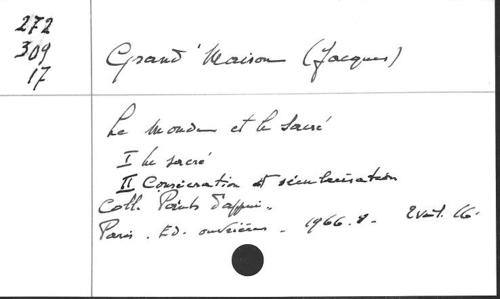 272
309
17
Grand'Maison (Jacques)
Le Monde et le Sacré
I Le sacré
II Consécration et sécularisation
Coll. Points d'appui.
Paris. Ed. ouvrières. 1966. 8.